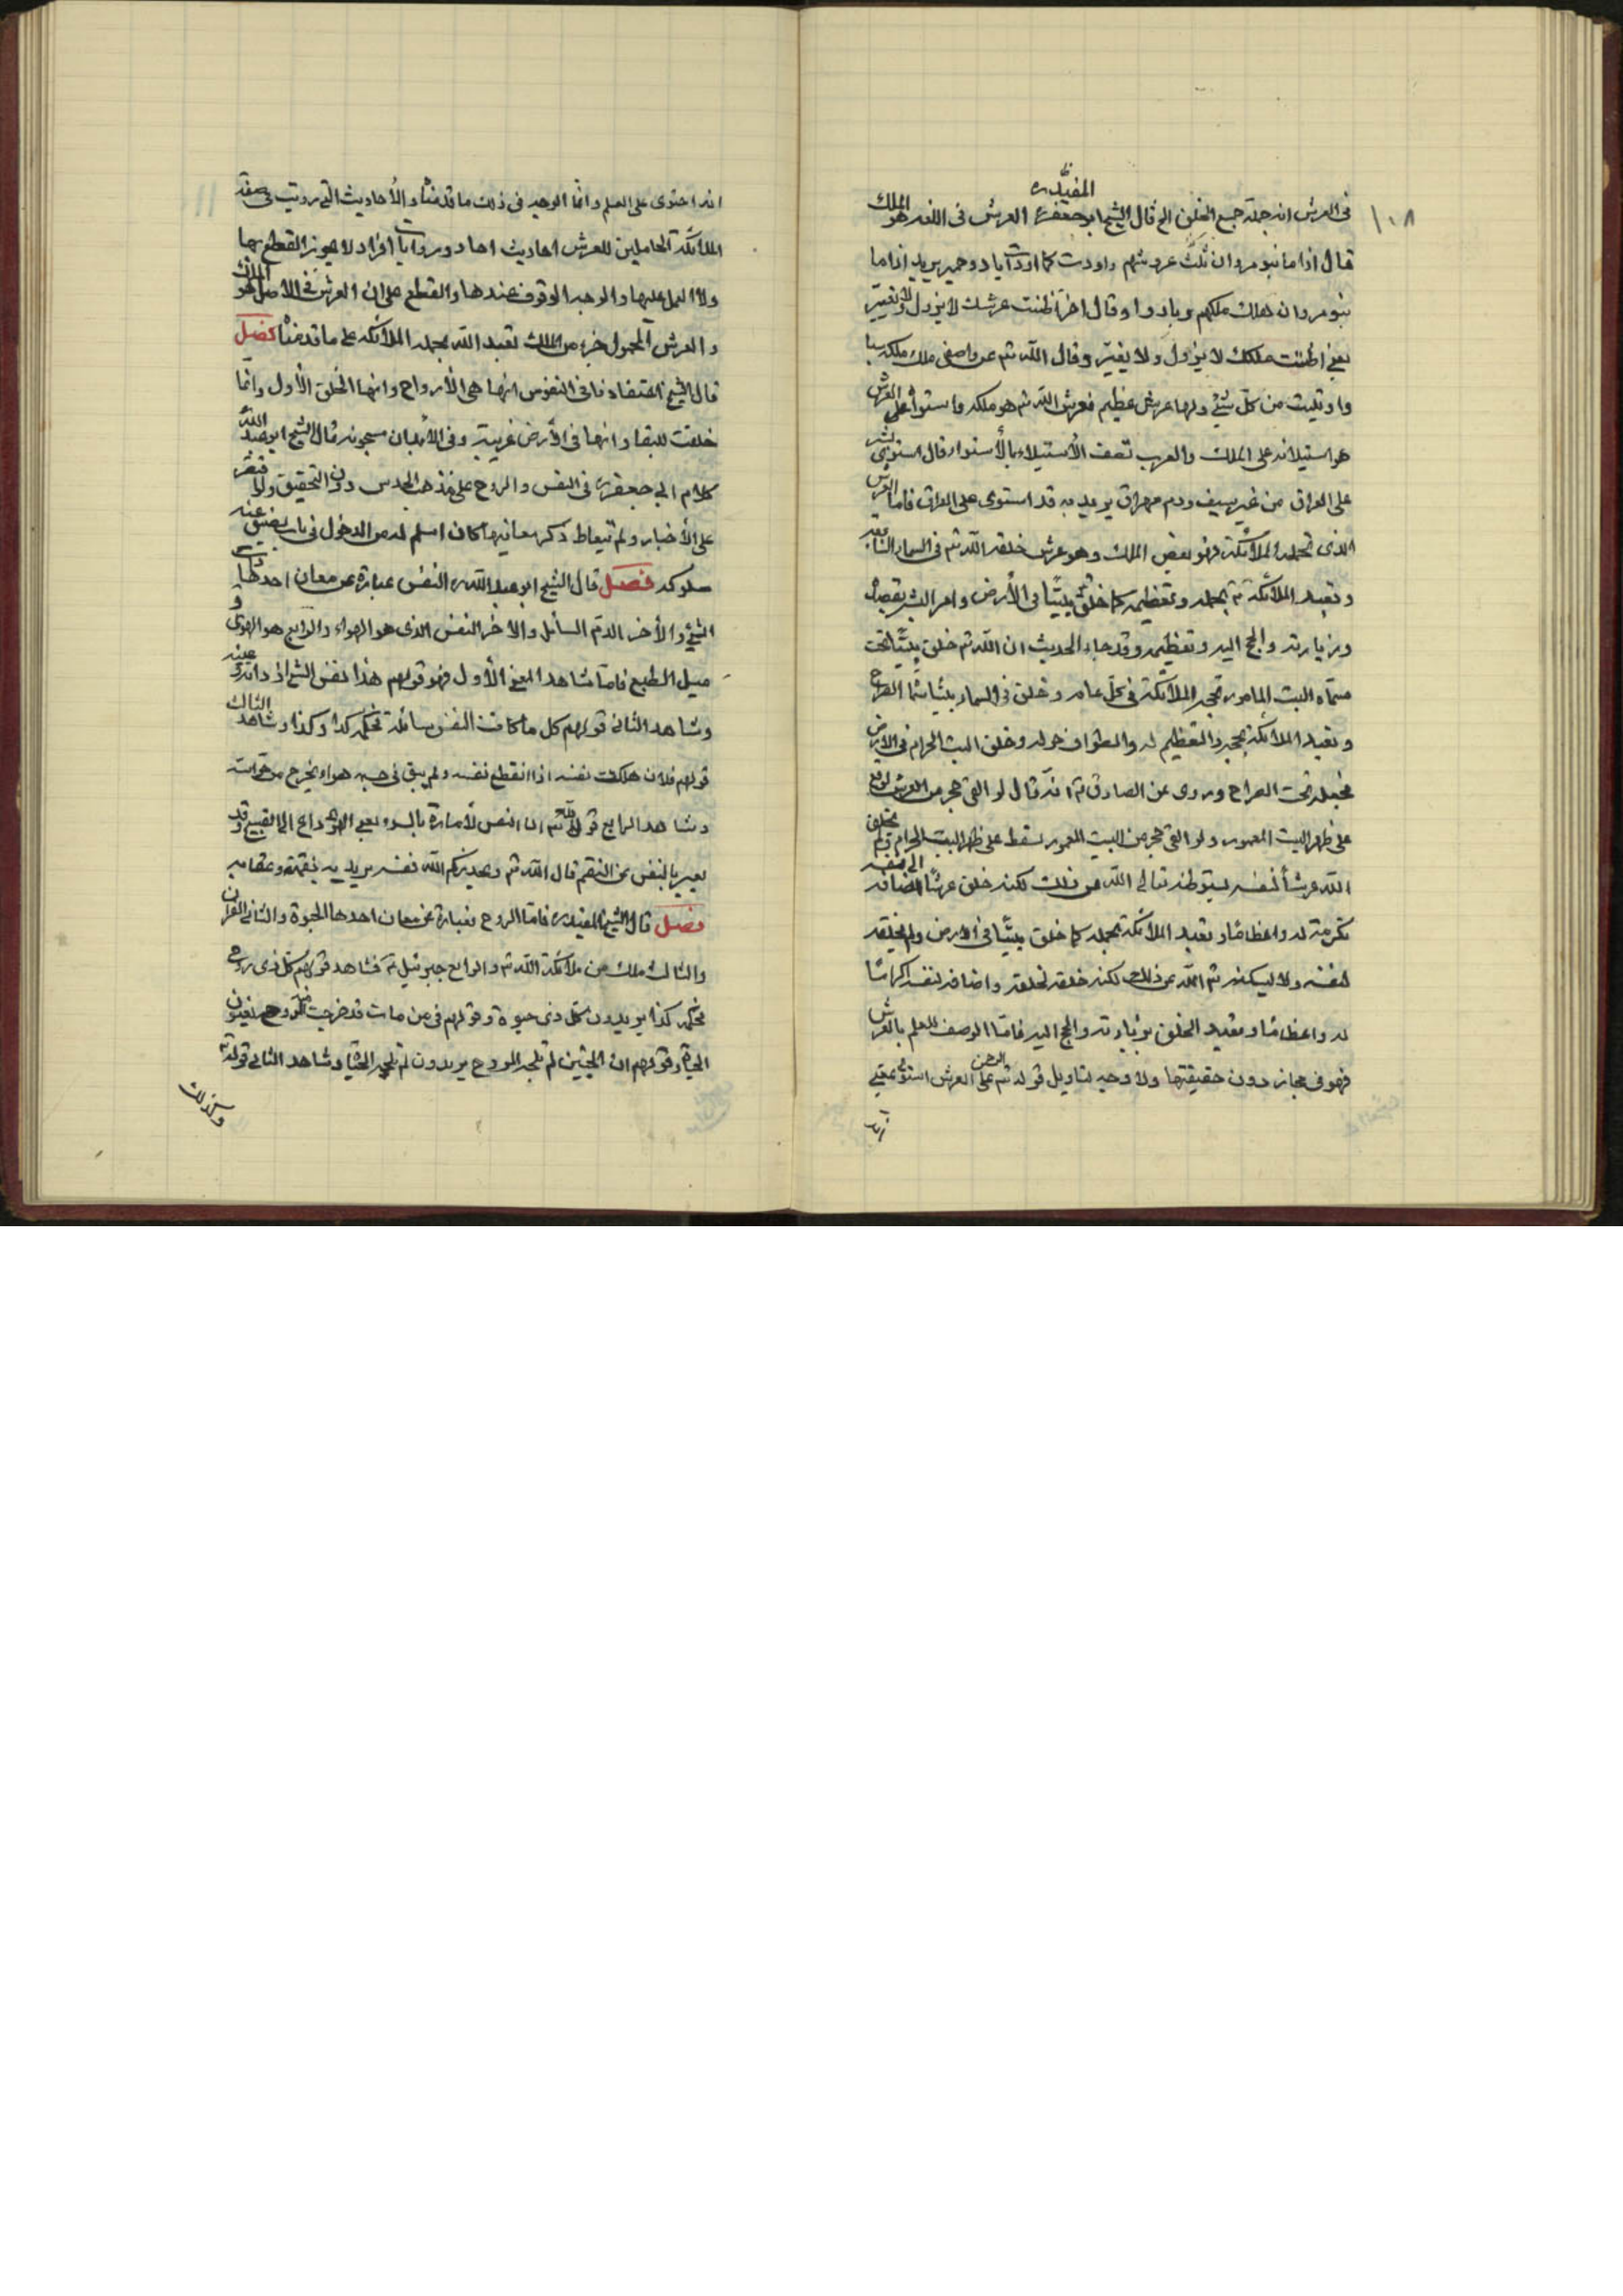 ١٠٨
فى العرش انه جملة جميع الخلق الخ قال الشيخ المفيد ره ابو جعفر ره العرش فى اللغه هو الملك
قال اذا ما بنو مروان ثلث عروشهم واودت كما اودت اياد وحمير يريد اذا ما
بنو مروان هلك ملكهم وبادوا وقال اخر اظنت عرشك لا يزول ولا يغير
يعنى اظنت ملكك لا يزول ولا يغير وقال الله تم عن واصفى ملك ملكه سبا
واوتيت من كل شئ ولها عرش عظيم فعرش الله تم هو ملكه واستوائه على العرش
هو استيلائه على الملك والعرب تصف الأستيلاء بالأستواء قال استوى بشر
على العراق من غير سيف ودم مهراق يريد به قد استوى على العراق فاما العرش
الذى تحمله الملائكة فهو بعض الملك وهو عرش خلقه الله تم فى السماء السابعة
وتعبد الملائكة تم بحمله وتعظيمه كما خلق تم بيتًا فى الأرض وامر البشر بقصده
وزيارته والحج اليه وتعظيمه وقد جاء الحديث ان الله تم خلق بيتًا تحت
سماه البيت المامور تحجه الملائكة فى كل عام وخلق فى السماء بيتًا سماه الضراح
وتعبد الملائكة بحجه والتعظيم له والطواف حوله وخلق البيت الحرام فى الارض
فجعله تحت الضراح وروى عن الصادق ع انه قال لو القى حجر من العرش لوقع
على ظهر البيت المعمور ولو القى حجر من البيت المعمور لسقط على ظهر البيت الحرام ولم يخلق
الله عرشاً لنفسه ليتوطنه تعالى الله عن ذلك لكنه خلق عرشًا اضافه الى نفسه
تكرمة له واعظامًا وتعبد الملائكة بحمله كما خلق بيتًا فى الارض ولم يخلقه
لنفسه ولا ليسكنه تم الله عن ذلك لكنه خلقه لخلقه واضافه لنفسه اكرامًا
له واعظامًا وتعبد الخلق بزيارته والحج اليه فاما الوصف للعلم بالعرش
فهو فى مجاز دون حقيقتها ولا وجه لتاويل قوله تم الرحمن على العرش استوى بمعنى
انه
انه احتوى على العلم وانما الوجه فى ذلك ما قدمناه والأحاديث التى رويت فى صفة
الملائكة الحاملين للعرش احاديث احاد وروايات افراد لا يجوز القطع بها
ولا العمل عليها والوجه الوقوف عندها والقطع على ان العرش فى الاصل هو الملك
والعرش المحمول جزء من الملك تعبد الله بحمله الملائكه على ما قدمناه فصل
قال الشيخ اعتقادنا فى النفوس انها هى الأرواح وانها الخلق الأول وانما
خلقت للبقاء وانها فى الأرض غريبة وفى الأبدان مسجونه قال الشيخ ابو عبد الله
كلام ابى جعفر ره فى النفس والروح على مذهب الحدس دون التحقيق ولو اقتصر
على الأخبار ولم يتعاط ذكر معانيها كان اسلم له من الدخول فى باب يضيق عنه
سلوكه فصل قال الشيخ ابو عبد الله ره النفس عبارة عن معان احدها ذات
الشئ والأخر الدم السائل والاخر النفس الذى هو الهواء والرابع هو الهوى و
ميل الطبع فاما شاهد المعنى الأول فهو قولهم هذا نفس الشئ اى ذاته وعينه
وشاهد الثانى قولهم كل ما كانت النفس سائلة فحكمه كذا وكذا وشاهد الثالث
قولهم فلان هلكت نفسه اذا انقطع نفسه ولم يبق فى جسمه هواء يخرج من حواسه
وشاهد الرابع قوله تم ان النفس لأمارة بالسوء يعنى الهوى داع الى القبيح وقد
يعبر بالنفس عن النقم قال الله تم ويحذركم الله نفسه يريد به نقمته وعقابه
فصل قال الشيخ المفيد ره فاما الروح فعبارة عن معان احدها الحيوة والثانى القران
والثالث ملك من ملائكة الله تم والرابع جبرئيل ع فشاهد قولهم كل ذى روح
فحكمه كذا يريدون كل ذى حيوة وقولهم فى من مات قد خرجت منه الروح يعنون
الحياة وقولهم ان الجنين لم تلجه الروح يريدون لم تلجه الحياة وشاهد الثانى قوله تم
وكذلك